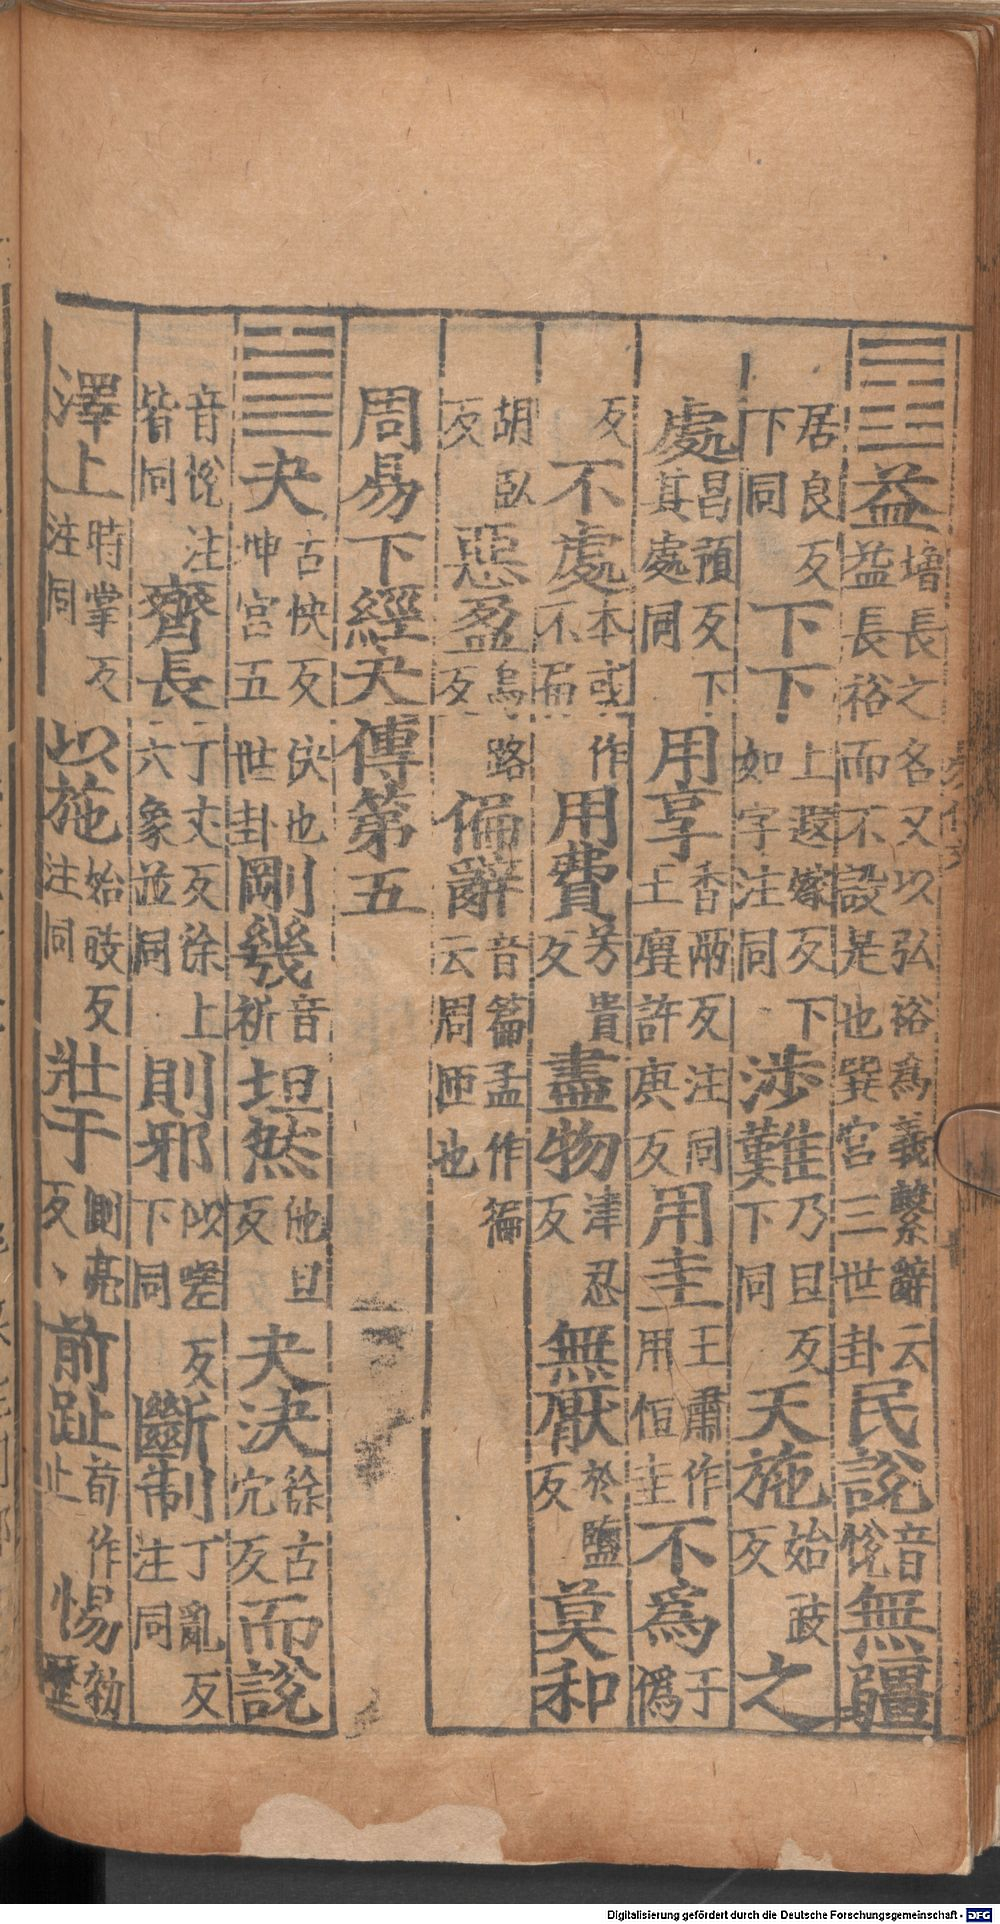 ䷩益增長之名又以弘裕爲義繫辭云益長裕而不設是也巽宮三世卦民說音悅無疆
居良反下同下下上遐嫁反下如字注同涉難乃旦反下同天施始豉反之
處昌預反下其處同用享香兩反注同王廙許庚反用圭王肅作用恒圭不爲于僞
反不處本或作不爲用費芳貴反盡物津忍反無厭於鹽反莫和
胡臥反惡盈烏路反偏辭音篇孟作徧云周匝也
周易下經夬傳第五
䷪夬古快反決也坤宮五世卦剛幾音祈坦然他旦反夬決徐古穴反而說
音悅注皆同齊長丁丈反徐上六象並同則邪以嗟反下同斷制丁亂反注同
澤上時掌反注同以施始豉反注同壯于側亮反、前趾荀作止惕勑歷
Digitalisierung gefördert durch die Deutsche Forschungsgemeinschaft - DFG